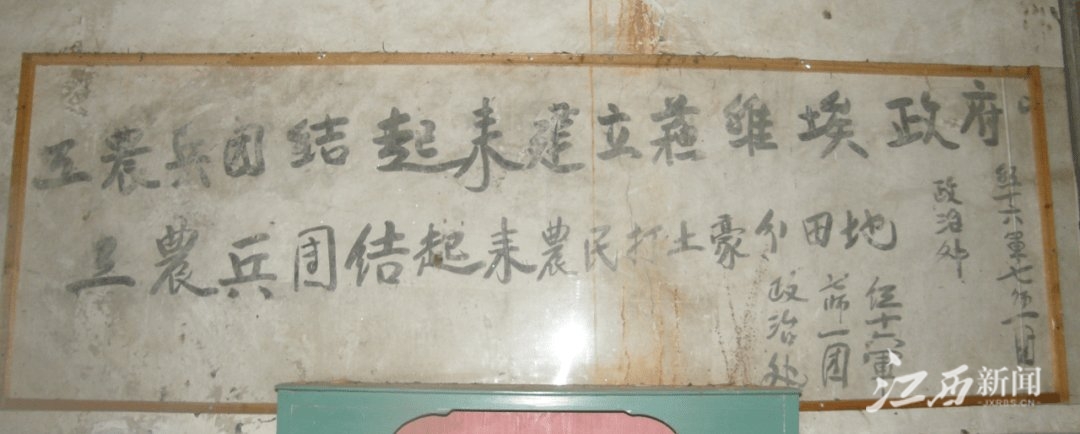 工农兵团结起来建立苏维埃政府
红十六軍七师一团
政治处
工農兵团结起来農民打土豪分田地
红十六軍
七师一团
政治处
江西新闻
JXRBS.CN